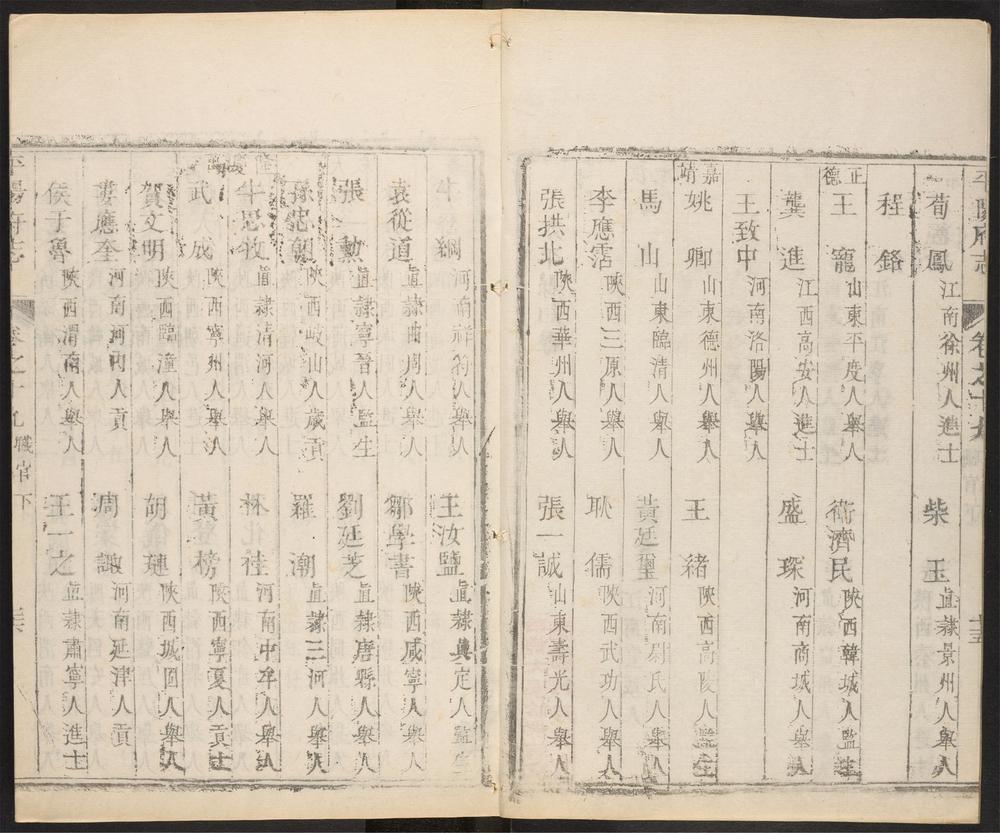 平陽府志 卷之十九
荀鳳 江南徐州人進士 柴玉 直隸景州人舉人
程鉻
正德 王寵 山東平度人舉人 衛濟民 陝西韓城人監生
龔進 江西高安人進士 盛琛 河南商城人舉人
王致中 河南洛陽人舉人
嘉靖 姚卿 山東德州人舉人 王緒 陝西高陵人監生
馬山 山東臨清人舉人 黃廷璽 河南尉氏人舉人
李應霑 陝西三原人舉人 耿儒 陝西武功人舉人
張拱北 陝西華州人舉人 張一誠 山東壽光人舉人
牛綱 河南祥符人舉人 王汝鹽 直隸真定人監生
袁從道 直隸曲周人舉人 鄒學書 陝西咸寧人舉人
張勲 直隸寧晉人監生 劉廷芝 直隸唐縣人舉人
孫範 陝西岐山人歲貢 羅潮 直隸三河人舉人
牛思牧 直隸清河人舉人 林化 河南中牟人舉人
武成 陝西寧州人舉人 黃榜 陝西寧夏人貢士
賀文明 陝西臨潼人舉人 胡璉 陝西城固人舉人
婁應奎 河南河內人貢 周諏 河南延津人貢
侯于魯 陝西渭南人舉人 王一之 直隸肅寧人進士
平陽府志 卷之十九 職官下